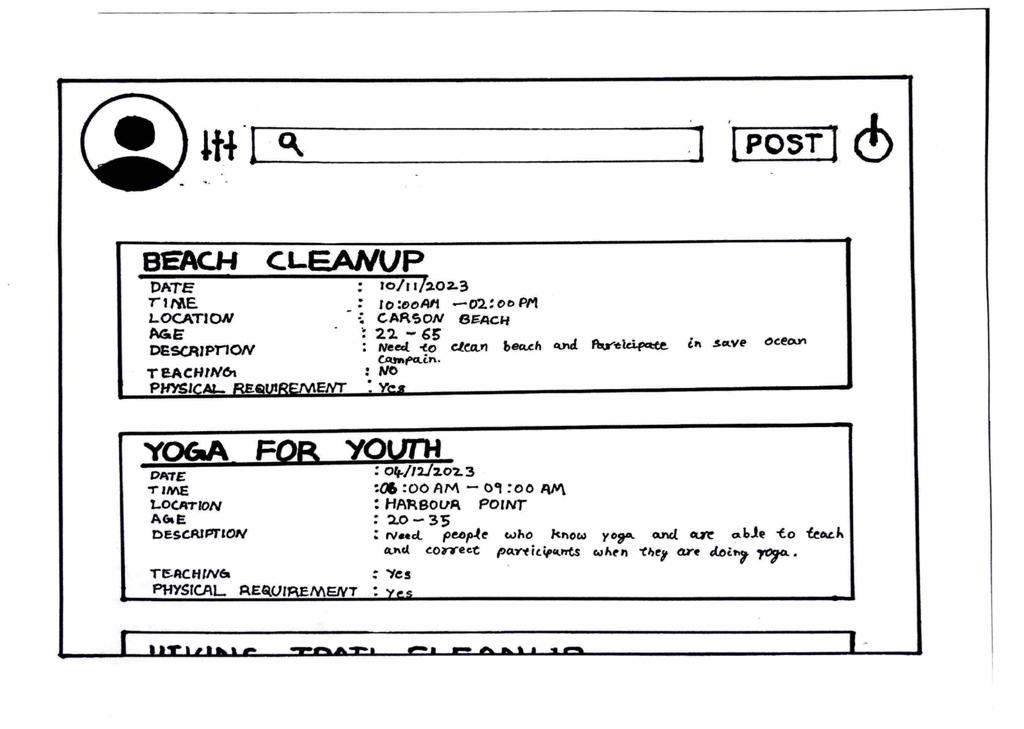 POST
BEACH CLEANUP
DATE : 10/11/2023
TIME : 10:00AM - 02:00 PM
LOCATION : CARSON BEACH
AGE : 22 - 65
DESCRIPTION : Need to clean beach and Participate in save ocean
campain.
TEACHING : NO
PHYSICAL REQUIREMENT : Yes
YOGA FOR YOUTH
DATE : 04/12/2023
TIME :06:00 AM - 09:00 AM
LOCATION : HARBOUR POINT
AGE : 20-35
DESCRIPTION : Need people who know yoga and are able to teach
and correct participants when they are doing yoga.
TEACHING : Yes
PHYSICAL REQUIREMENT : Yes
HIKING TRAIL CLEANUP